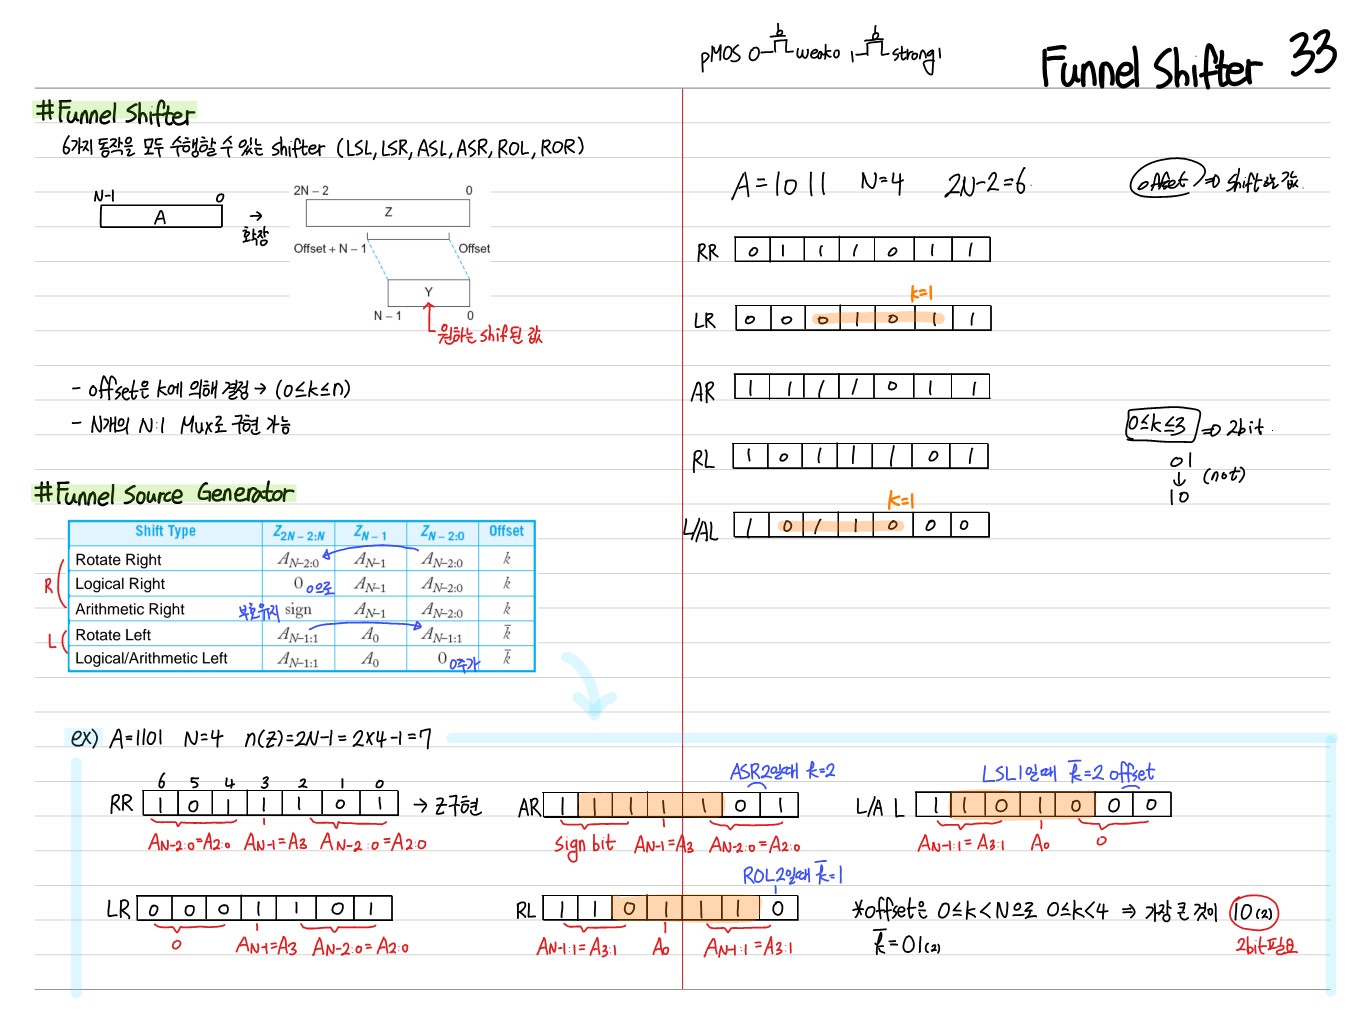 pMOS 0 b weak0 1 b strong1
Funnel Shifter 33
#Funnel Shifter
6가지 동작을 모두 수행할 수 있는 shifter (LSL, LSR, ASL, ASR, ROL, ROR)
N-1 0
A
→
확장
2N – 2 0
Z
Offset + N – 1 Offset
Y
N – 1 0
원하는 shif된 값
- offset은 k에 의해 결정 → (0≤k≤n)
- N개의 N:1 Mux로 구현 가능
#Funnel Source Generator
Shift Type Z2N – 2:N ZN – 1 ZN – 2:0 Offset
Rotate Right AN–2:0 AN–1 AN–2:0 k
Logical Right 0 0으로 AN–1 AN–2:0 k
Arithmetic Right 부호유지 sign AN–1 AN–2:0 k
Rotate Left AN–1:1 A0 AN–1:1 k̅
Logical/Arithmetic Left AN–1:1 A0 0 0추가 k̅
R
L
A=1011 N=4 2N-2=6
offset ⇒ shift 값
RR 0 1 1 1 0 1 1
k=1
LR 0 0 0 1 0 1 1
AR 1 1 1 1 0 1 1
RL 1 0 1 1 1 0 1
k=1
L/AL 1 0 1 1 0 0 0
0≤k≤3 ⇒ 2bit.
01
↓ (not)
10
ex) A=1101 N=4 n(z)=2N-1=2×4-1=7
6 5 4 3 2 1 0
RR 1 0 1 1 1 0 1 → Z구현
AN-2:0=A2:0 AN-1=A3 AN-2:0=A2:0
ASR2일때 k=2
AR 1 1 1 1 1 0 1
sign bit AN-1=A3 AN-2:0=A2:0
LSL1일때 k̅=2 offset
L/A L 1 1 0 1 0 0 0
AN-1:1=A3:1 A0 0
LR 0 0 0 1 1 0 1
0 AN-1=A3 AN-2:0=A2:0
ROL2일때 k̅=1
RL 1 1 0 1 1 1 0
AN-1:1=A3:1 A0 AN-1:1=A3:1
*offset은 0≤k<N으로 0≤k<4 ⇒ 가장 큰 것이 10(2)
k̅=01(2)
2bit필요